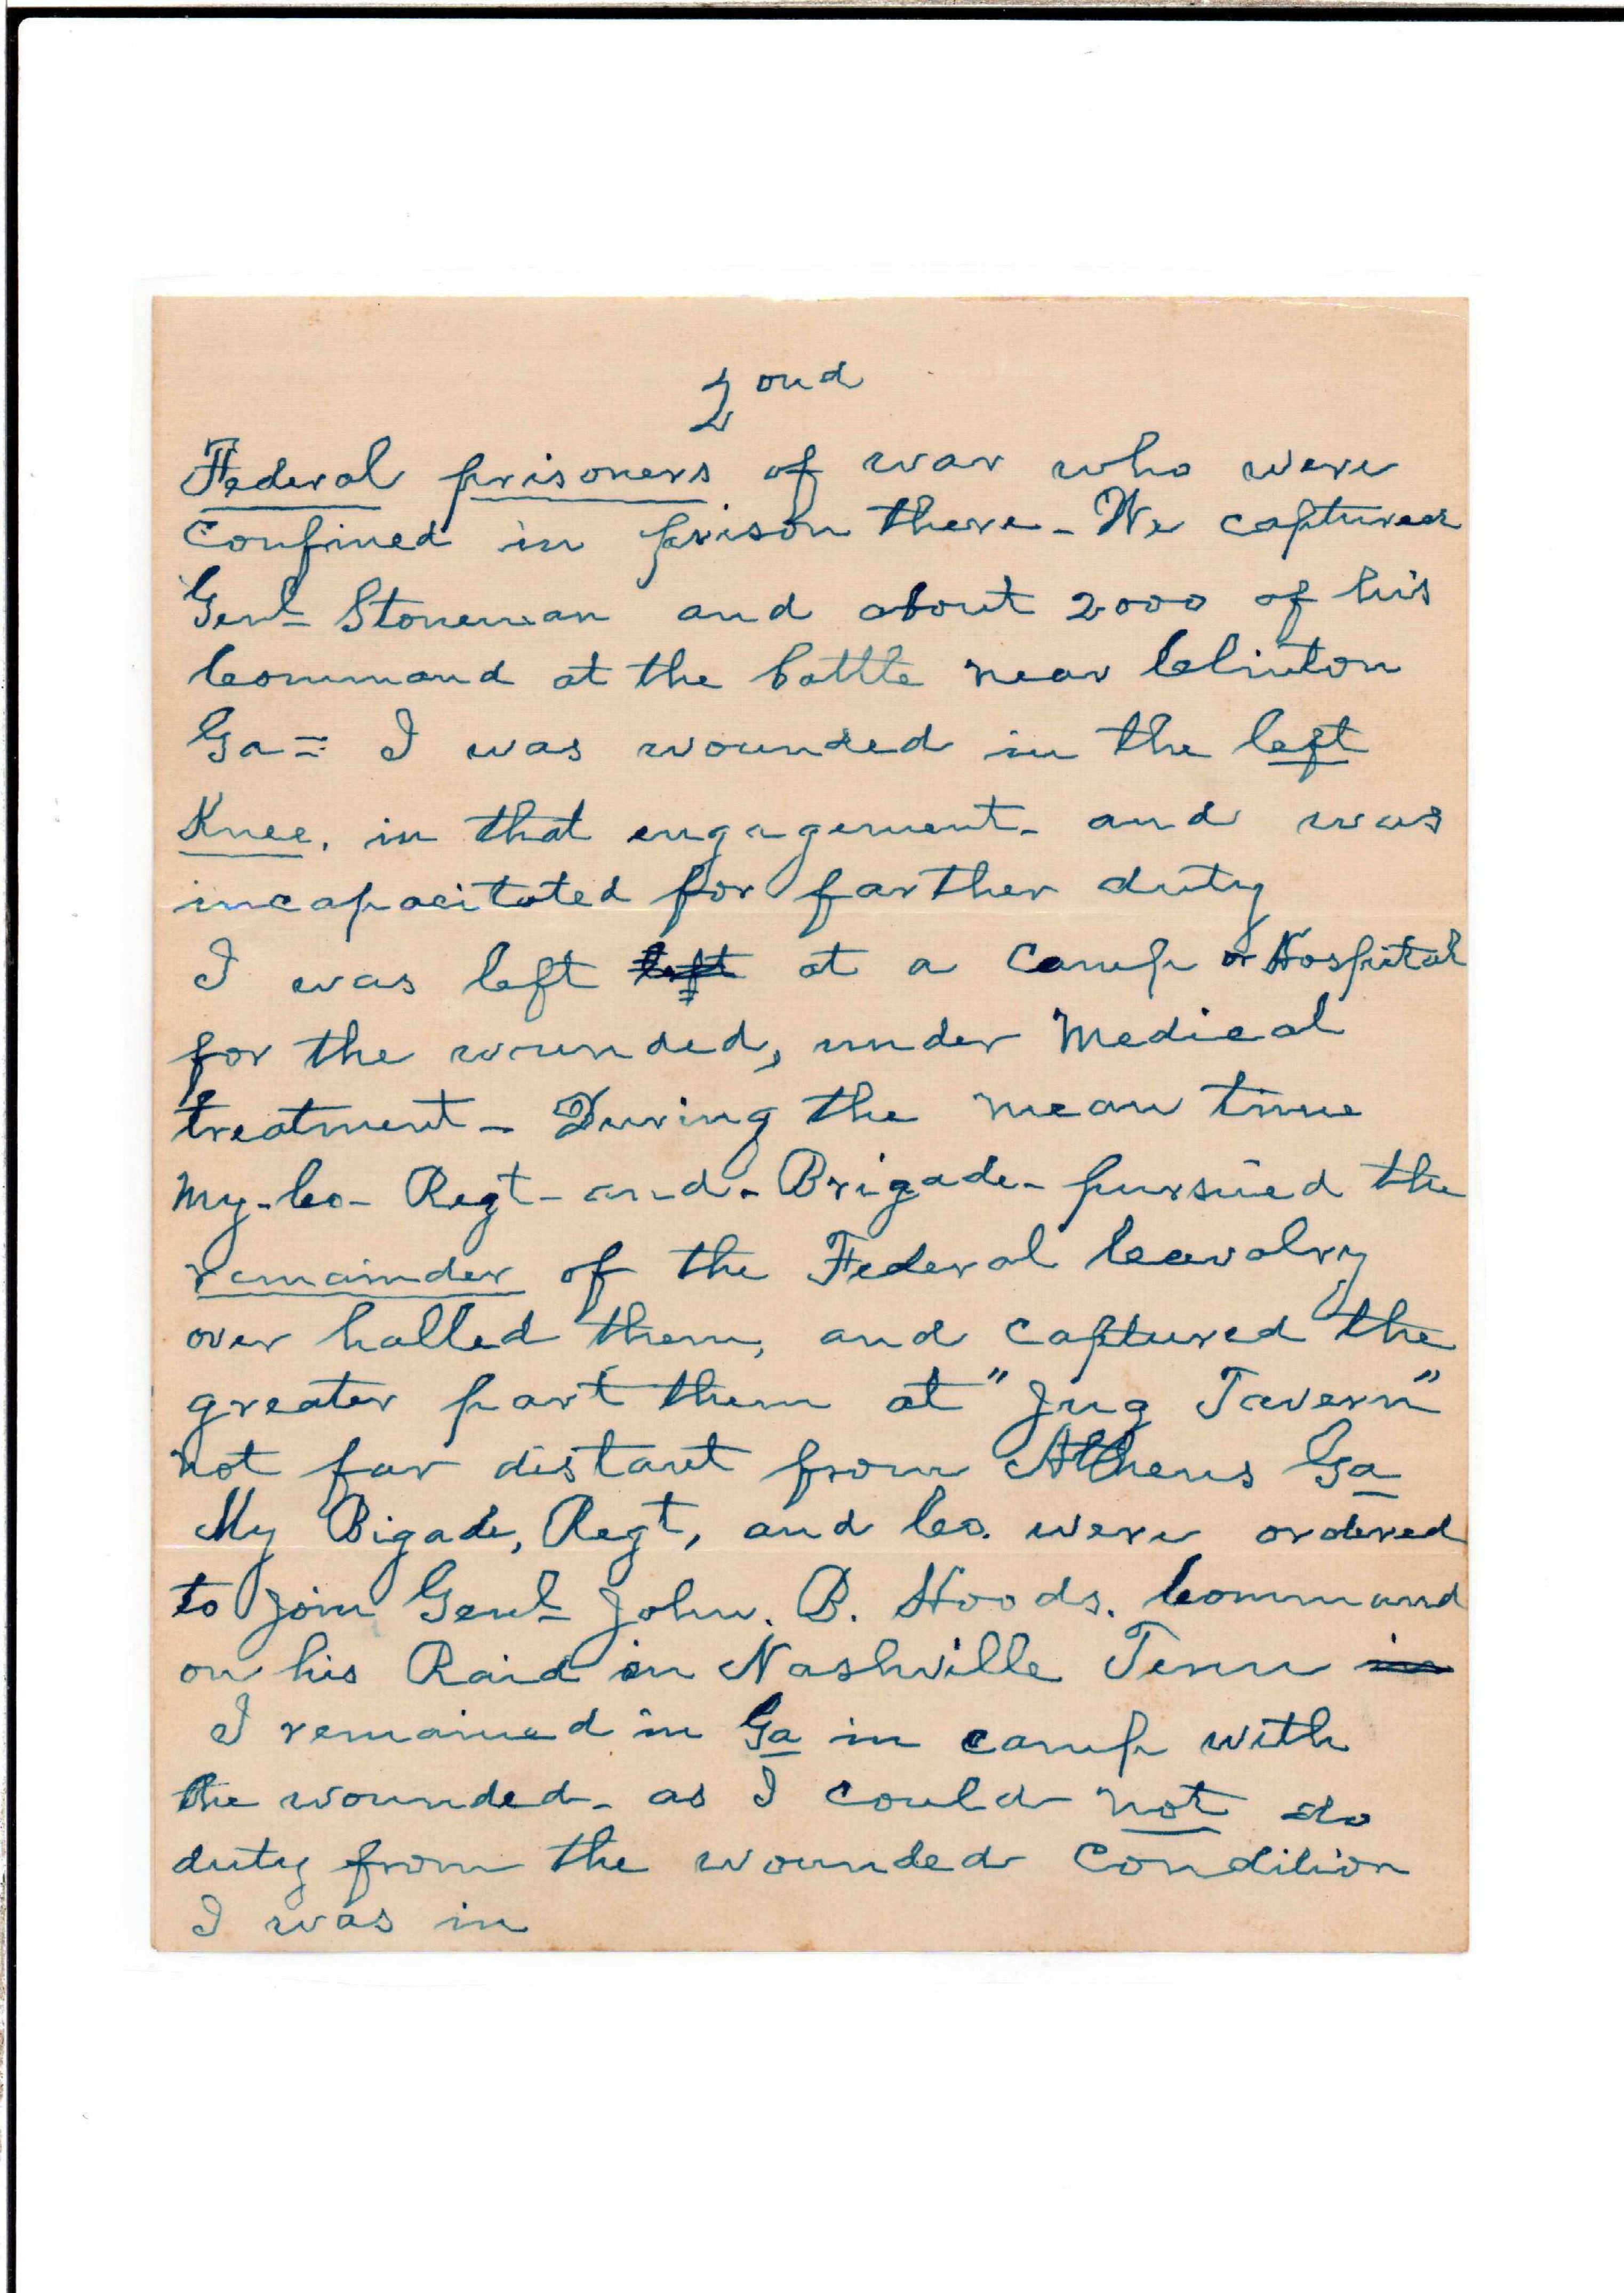 2ond
Federal prisoners of war who were
Confined in prison there - We captured
Genl- Stoneman and about 2000 of his
Command at the battle near Clinton
Ga = I was wounded in the left
Knee, in that engagement - and was
incapacitated for farther duty
I was left left at a Camp or Hospital
for the wounded, under Medical
treatment - During the mean time
My - Co - Regt - and - Brigade - pursued the
remainder of the Federal Cavalry
over halled them, and Captured the
greater part them at "Jug Tavern"
not far distant from Athens Ga
My Bigade, Regt, and Co. were ordered
to Join Genl- John. B. Hoods. Command
on his Raid in Nashville Tenn in
I remained in Ga in camp with
the wounded - as I could not do
duty from the wounded Condition
I was in